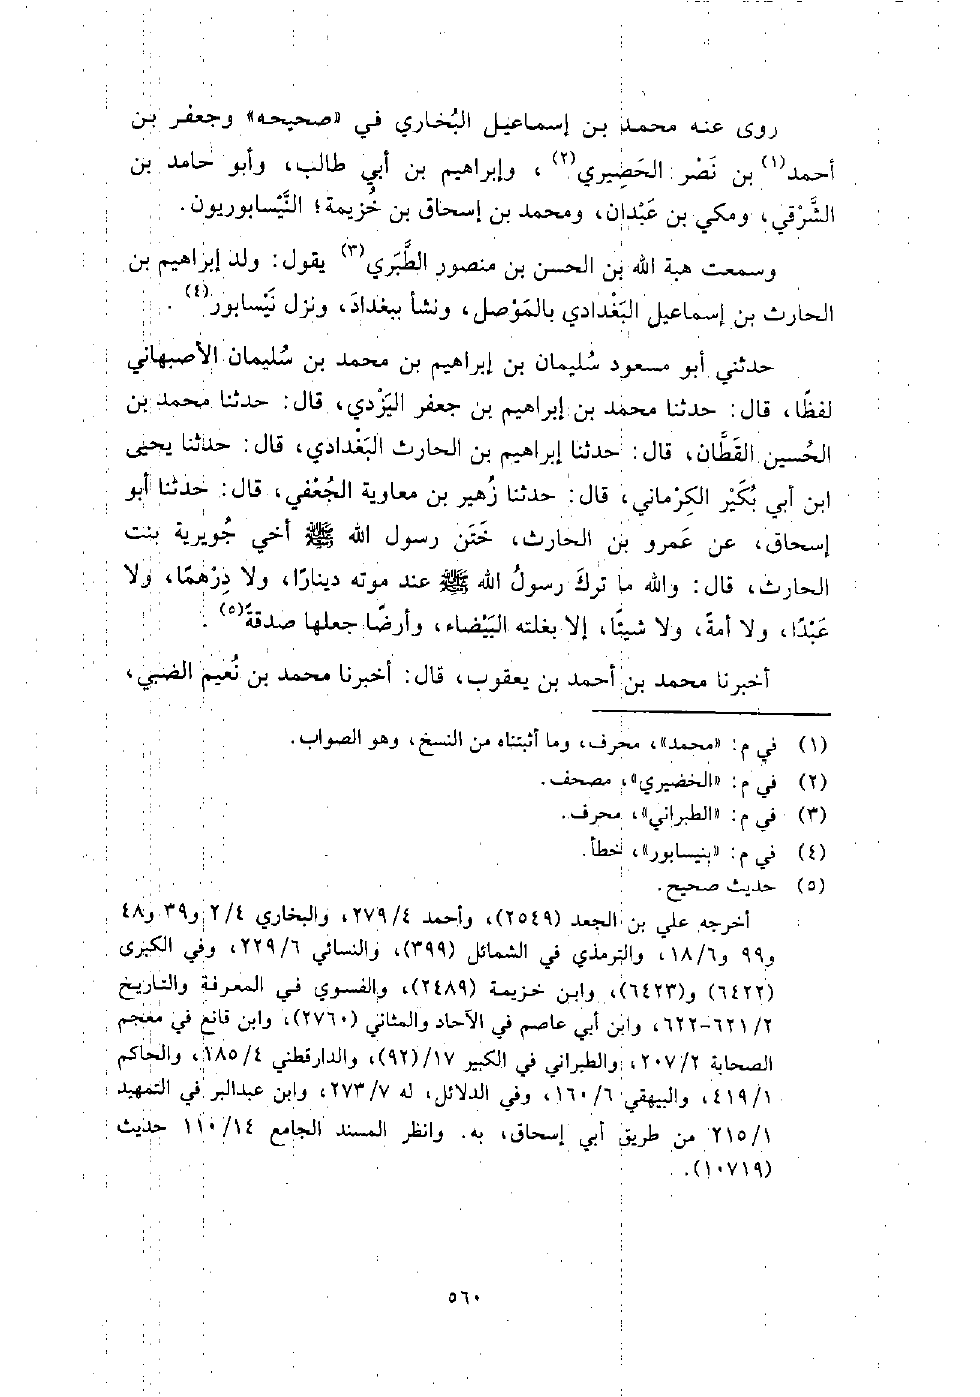 روى عنه محمد بن إسماعيل البُخاري في «صحيحه» وجعفر بن
أحمد(١) بن نَصْر الحَصِيري(٢)، وإبراهيم بن أبي طالب، وأبو حامد بن
الشَّرْقي، ومكي بن عَبْدان، ومحمد بن إسحاق بن خُزيمة؛ النَّيْسابوريون.
وسمعت هبة الله بن الحسن بن منصور الطَّبَري(٣) يقول: ولد إبراهيم بن
الحارث بن إسماعيل البَغْدادي بالمَوْصل، ونشأ ببغدادَ، ونزل نَيْسابور(٤).
حدثني أبو مسعود سُليمان بن إبراهيم بن محمد بن سُليمان الأصبهاني
لفظًا، قال: حدثنا محمد بن إبراهيم بن جعفر اليَزْدي، قال: حدثنا محمد بن
الحُسين القَطَّان، قال: حدثنا إبراهيم بن الحارث البَغْدادي، قال: حدثنا يحيى
ابن أبي بُكَيْر الكِرْماني، قال: حدثنا زُهير بن معاوية الجُعْفي، قال: حدثنا أبو
إسحاق، عن عَمرو بن الحارث، خَتَن رسول الله ﷺ أخي جُويرية بنت
الحارث، قال: والله ما تركَ رسولُ الله ﷺ عند موته دينارًا، ولا دِرْهمًا، ولا
عَبْدًا، ولا أمةً، ولا شيئًا، إلا بغلته البَيْضاء، وأرضًا جعلها صدقةً(٥).
أخبرنا محمد بن أحمد بن يعقوب، قال: أخبرنا محمد بن نُعيم الضبي،
(١) في م: «محمد»، محرف، وما أثبتناه من النسخ، وهو الصواب.
(٢) في م: «الخضيري»، مصحف.
(٣) في م: «الطبراني»، محرف.
(٤) في م: «بنيسابور»، خطأ.
(٥) حديث صحيح.
أخرجه علي بن الجعد (٢٥٤٩)، وأحمد ٤/ ٢٧٩، والبخاري ٤/ ٢ و٣٩ و٤٨
و٩٩ و٦/ ١٨، والترمذي في الشمائل (٣٩٩)، والنسائي ٦/ ٢٢٩، وفي الكبرى
(٦٤٢٢) و(٦٤٢٣)، وابن خزيمة (٢٤٨٩)، والفسوي في المعرفة والتاريخ
٢/ ٦٢١-٦٢٢، وابن أبي عاصم في الآحاد والمثاني (٢٧٦٠)، وابن قانع في معجم
الصحابة ٢/ ٢٠٧، والطبراني في الكبير ١٧/ (٩٢)، والدارقطني ٤/ ١٨٥، والحاكم
١/ ٤١٩، والبيهقي ٦/ ١٦٠، وفي الدلائل، له ٧/ ٢٧٣، وابن عبدالبر في التمهيد
١/ ٢١٥ من طريق أبي إسحاق، به. وانظر المسند الجامع ١٤/ ١١٠ حديث
(١٠٧١٩).
٥٦٠